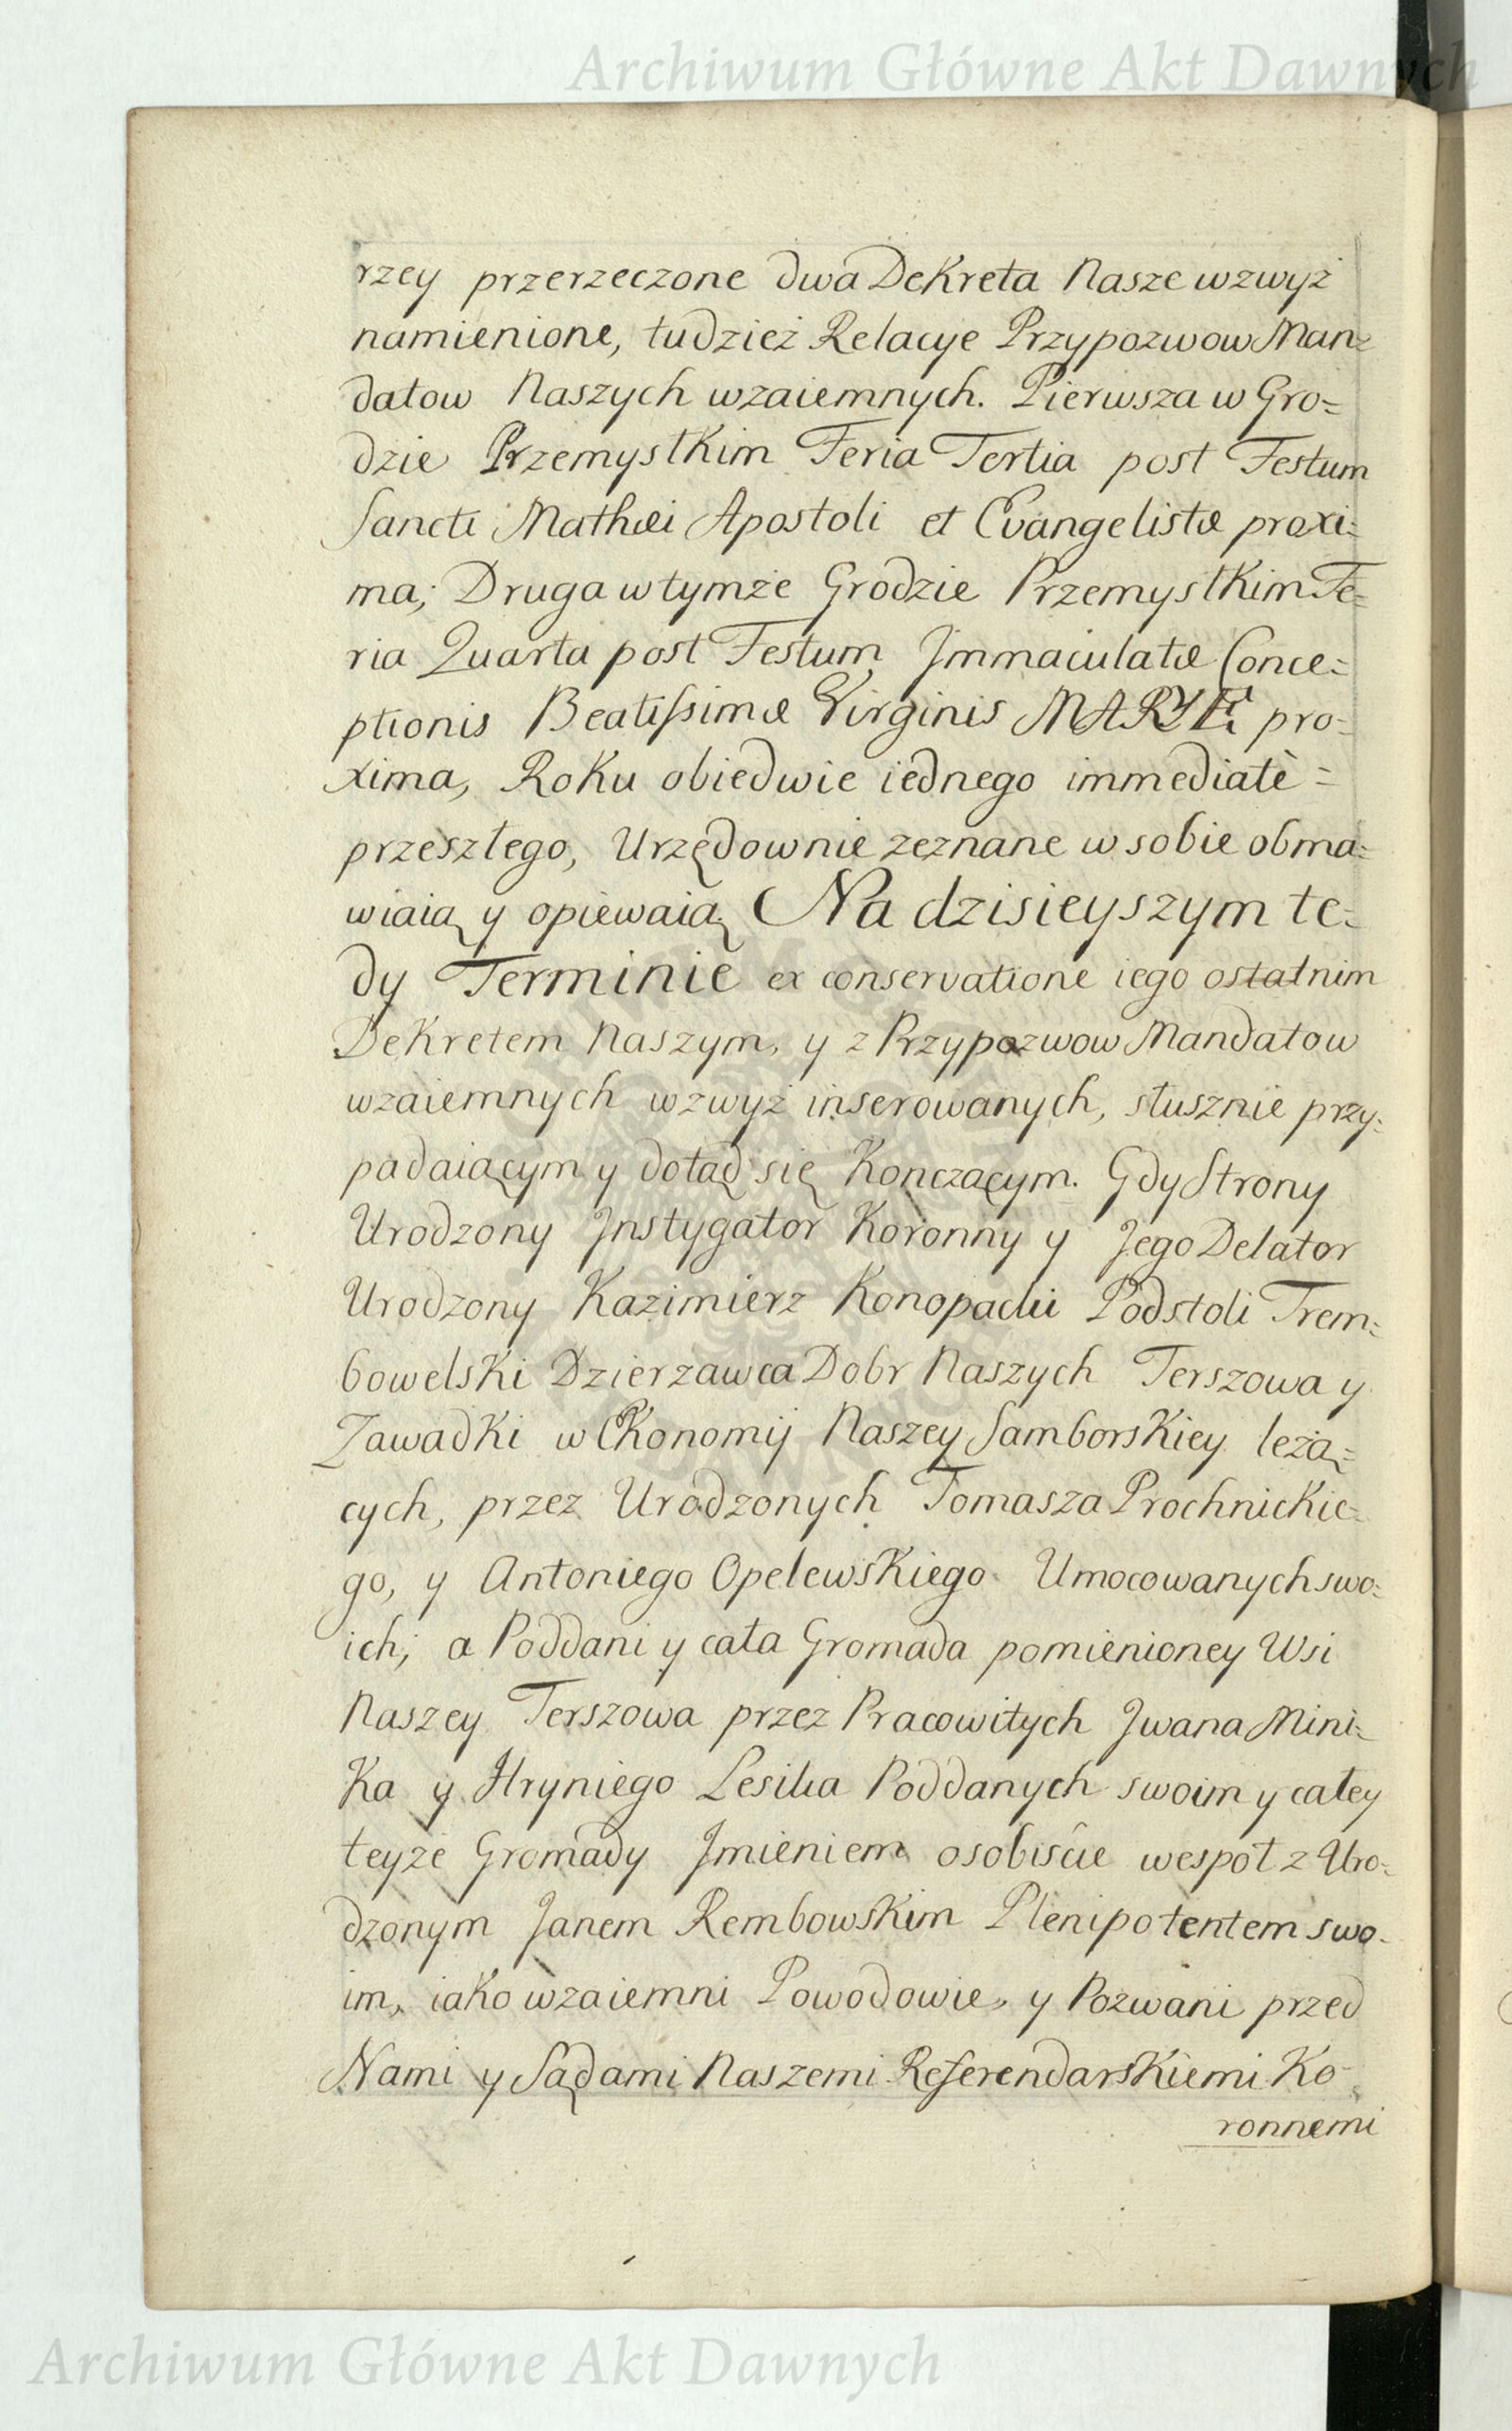 Archiwum Główne Akt Dawnych
rzey przerzeczone dwa Dekreta Nasze wzwyż
namienione, tudzież Relacye Przypozwow Man=
datow Naszych wzaiemnych. Pierwsza w Gro=
dzie Przemyslkim Feria Tertia post Festum
Sancti Mathæi Apostoli et Evangelistæ proxi=
ma; Druga w tymże Grodzie Przemyslkim Fe=
ria Quarta post Festum Jmmaculatæ Conce=
ptionis Beatissimæ Virginis MARYÆ pro=
xima, Roku obiedwie iednego immediatè =
przeszłego, Urzędownie zeznane w sobie obma=
wiaią y opiewaią. Na dzisieyszym te=
dy Terminie ex conservatione iego ostatnim
Dekretem Naszym, y z Przypozwow Mandatow
wzaiemnych wzwyż inserowanych, słusznie przy=
padaiącym y dotąd się Kończącym. Gdy Strony
Urodzony Jnstygator Koronny y Jego Delator
Urodzony Kazimierz Konopacki Podstoli Trem=
bowelski Dzierzawca Dobr Naszych Terszowa y
Zawadki w Ekonomij Naszey Samborskiey leżą=
cych, przez Urodzonych Tomasza Prochnickie=
go, y Antoniego Opelewskiego Umocowanych swo=
ich; a Poddani y cała Gromada pomienioney Wsi
Naszey Terszowa przez Pracowitych Jwana Mini=
ka y Hryniego Lesika Poddanych swoim y całey
teyże Gromady Jmieniem osobiście wespoł z Uro=
dzonym Janem Rembowskim Plenipotentem swo=
im, iako wzaiemni Powodowie, y Pozwani przed
Nami y Sądami Naszemi Referendarskiemi Ko=
ronnemi
Archiwum Główne Akt Dawnych